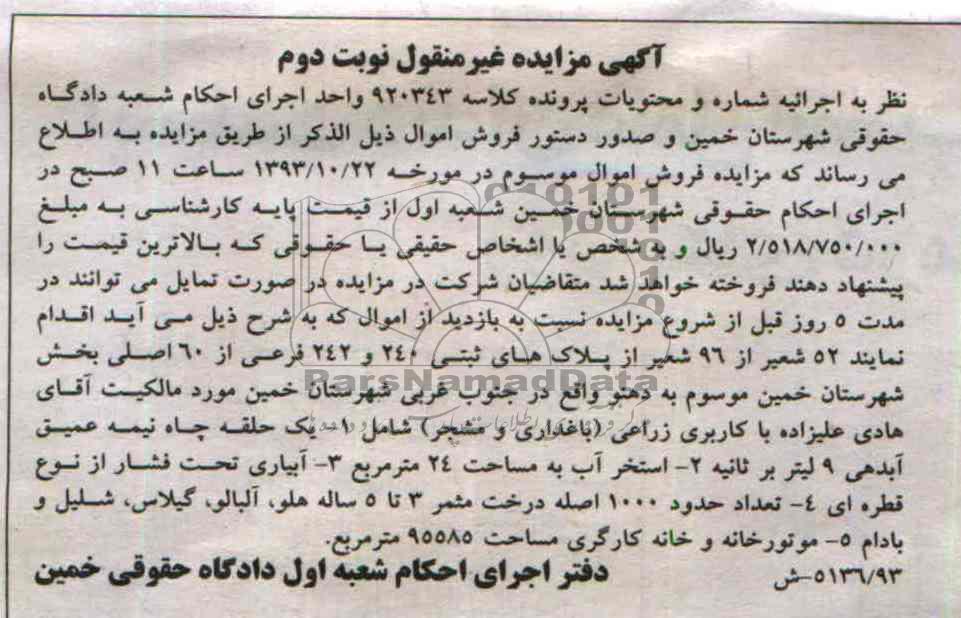 آگهی مزایده غیرمنقول نوبت دوم
نظر به اجرائیه شماره و محتویات پرونده کلاسه ۹۲۰۳۴۳ واحد اجرای احکام شعبه دادگاه
حقوقی شهرستان خمین و صدور دستور فروش اموال ذیل الذکر از طریق مزایده به اطلاع
می رساند که مزایده فروش اموال موسوم در مورخه ۱۳۹۳/۱۰/۲۲ ساعت ۱۱ صبح در
اجرای احکام حقوقی شهرستان خمین شعبه اول از قیمت پایه کارشناسی به مبلغ
۲/۵۱۸/۷۵۰/۰۰۰ ریال و به شخص یا اشخاص حقیقی یا حقوقی که بالاترین قیمت را
پیشنهاد دهند فروخته خواهد شد متقاضیان شرکت در مزایده در صورت تمایل می توانند در
مدت ۵ روز قبل از شروع مزایده نسبت به بازدید از اموال که به شرح ذیل می آید اقدام
نمایند ۵۲ شعیر از ۹۶ شعیر از پلاک های ثبتی ۲۴۰ و ۲۴۲ فرعی از ۶۰ اصلی بخش
ParsNamadData
شهرستان خمین موسوم به دهنو واقع در جنوب غربی شهرستان خمین مورد مالکیت آقای
هادی علیزاده با کاربری زراعی (باغداری و مشجر) شامل ۱- یک حلقه چاه نیمه عمیق
آبدهی ۹ لیتر بر ثانیه ۲- استخر آب به مساحت ۲۴ مترمربع ۳- آبیاری تحت فشار از نوع
قطره ای ۴- تعداد حدود ۱۰۰۰ اصله درخت مثمر ۳ تا ۵ ساله هلو، آلبالو، گیلاس، شلیل و
بادام ۵- موتورخانه و خانه کارگری مساحت ۹۵۵۸۵ مترمربع.
۵۱۳۶/۹۳-ش دفتر اجرای احکام شعبه اول دادگاه حقوقی خمین